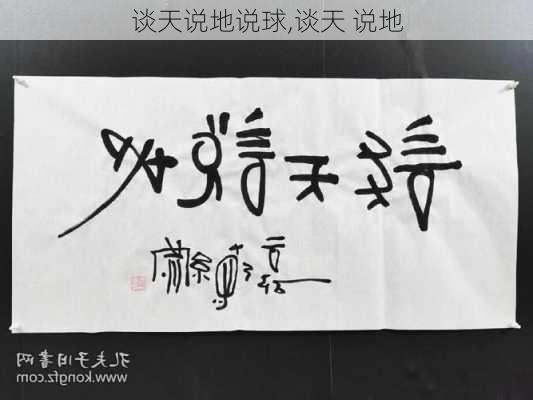 谈天说地说球,谈天 说地
談天說地
孔夫子旧書网
www.kongfz.com